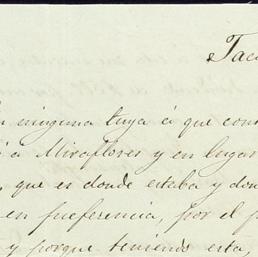 Tac
ninguna tuya á que con
á Miraflores y en lugar
que es donde estaba y don
en preferencia, por el p
y porque teniendo esta,